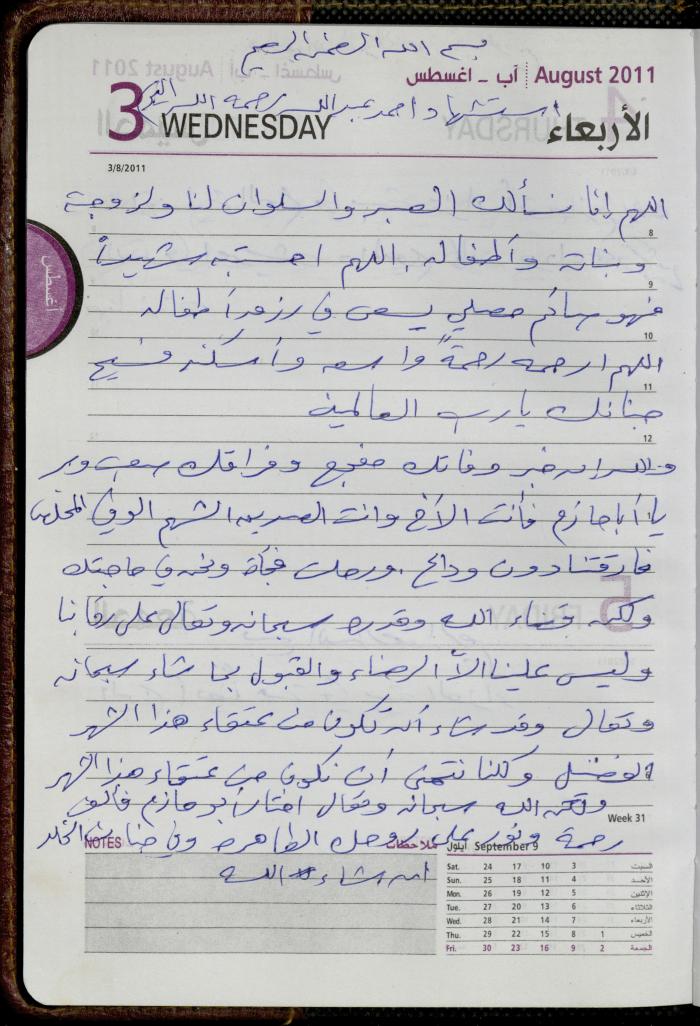 بسم الله الرحمن الرحيم
آب - اغسطس August 2011
3 WEDNESDAY الأربعاء
استشهاد احمد عبد الله رحمة الله عليه
3/8/2011
اللهم إنا نسألك الصبر والسلوان لنا ولزوجته
8
وبناته وأطفاله. اللهم احتسبه شهيداً
9
فهو صائم مصلي يسعى في رزق أطفاله
10
اللهم ارحمه رحمةً واسعه وأسكنه فسيح
11
جناتك يارب العالمين
12
والله إن خبر وفاتك مفجع وفراقك صعب ومر
يا أبا حازم فأنت الأخ وانت الصديق الشهم الوفي المخلص
فارقتنا دون وداع. ورحلت فجأة ونحن في حاجتك
ولكنه قضاء الله وقدره سبحانه وتعالى على رقابنا
وليس علينا الاّ الرضاء والقبول بما شاء سبحانه
وتعالى وقد شاء أن تكون من عتقاء هذا الشهر
الفضيل وكلنا نتمنى أن نكون من عتقاء هذا الشهر
ولكن الله سبحانه وتعالى اختار أبو حازم فألف
رحمة ونور على روحك الطاهره وفي جنات الخلد
ان شاء الله
Week 31
NOTES ملاحظات
أيلول September 9
Sat. 24 17 10 3 السبت
Sun. 25 18 11 4 الأحد
Mon. 26 19 12 5 الإثنين
Tue. 27 20 13 6 الثلاثاء
Wed. 28 21 14 7 الأربعاء
Thu. 29 22 15 8 1 الخميس
Fri. 30 23 16 9 2 الجمعة
أغسطس